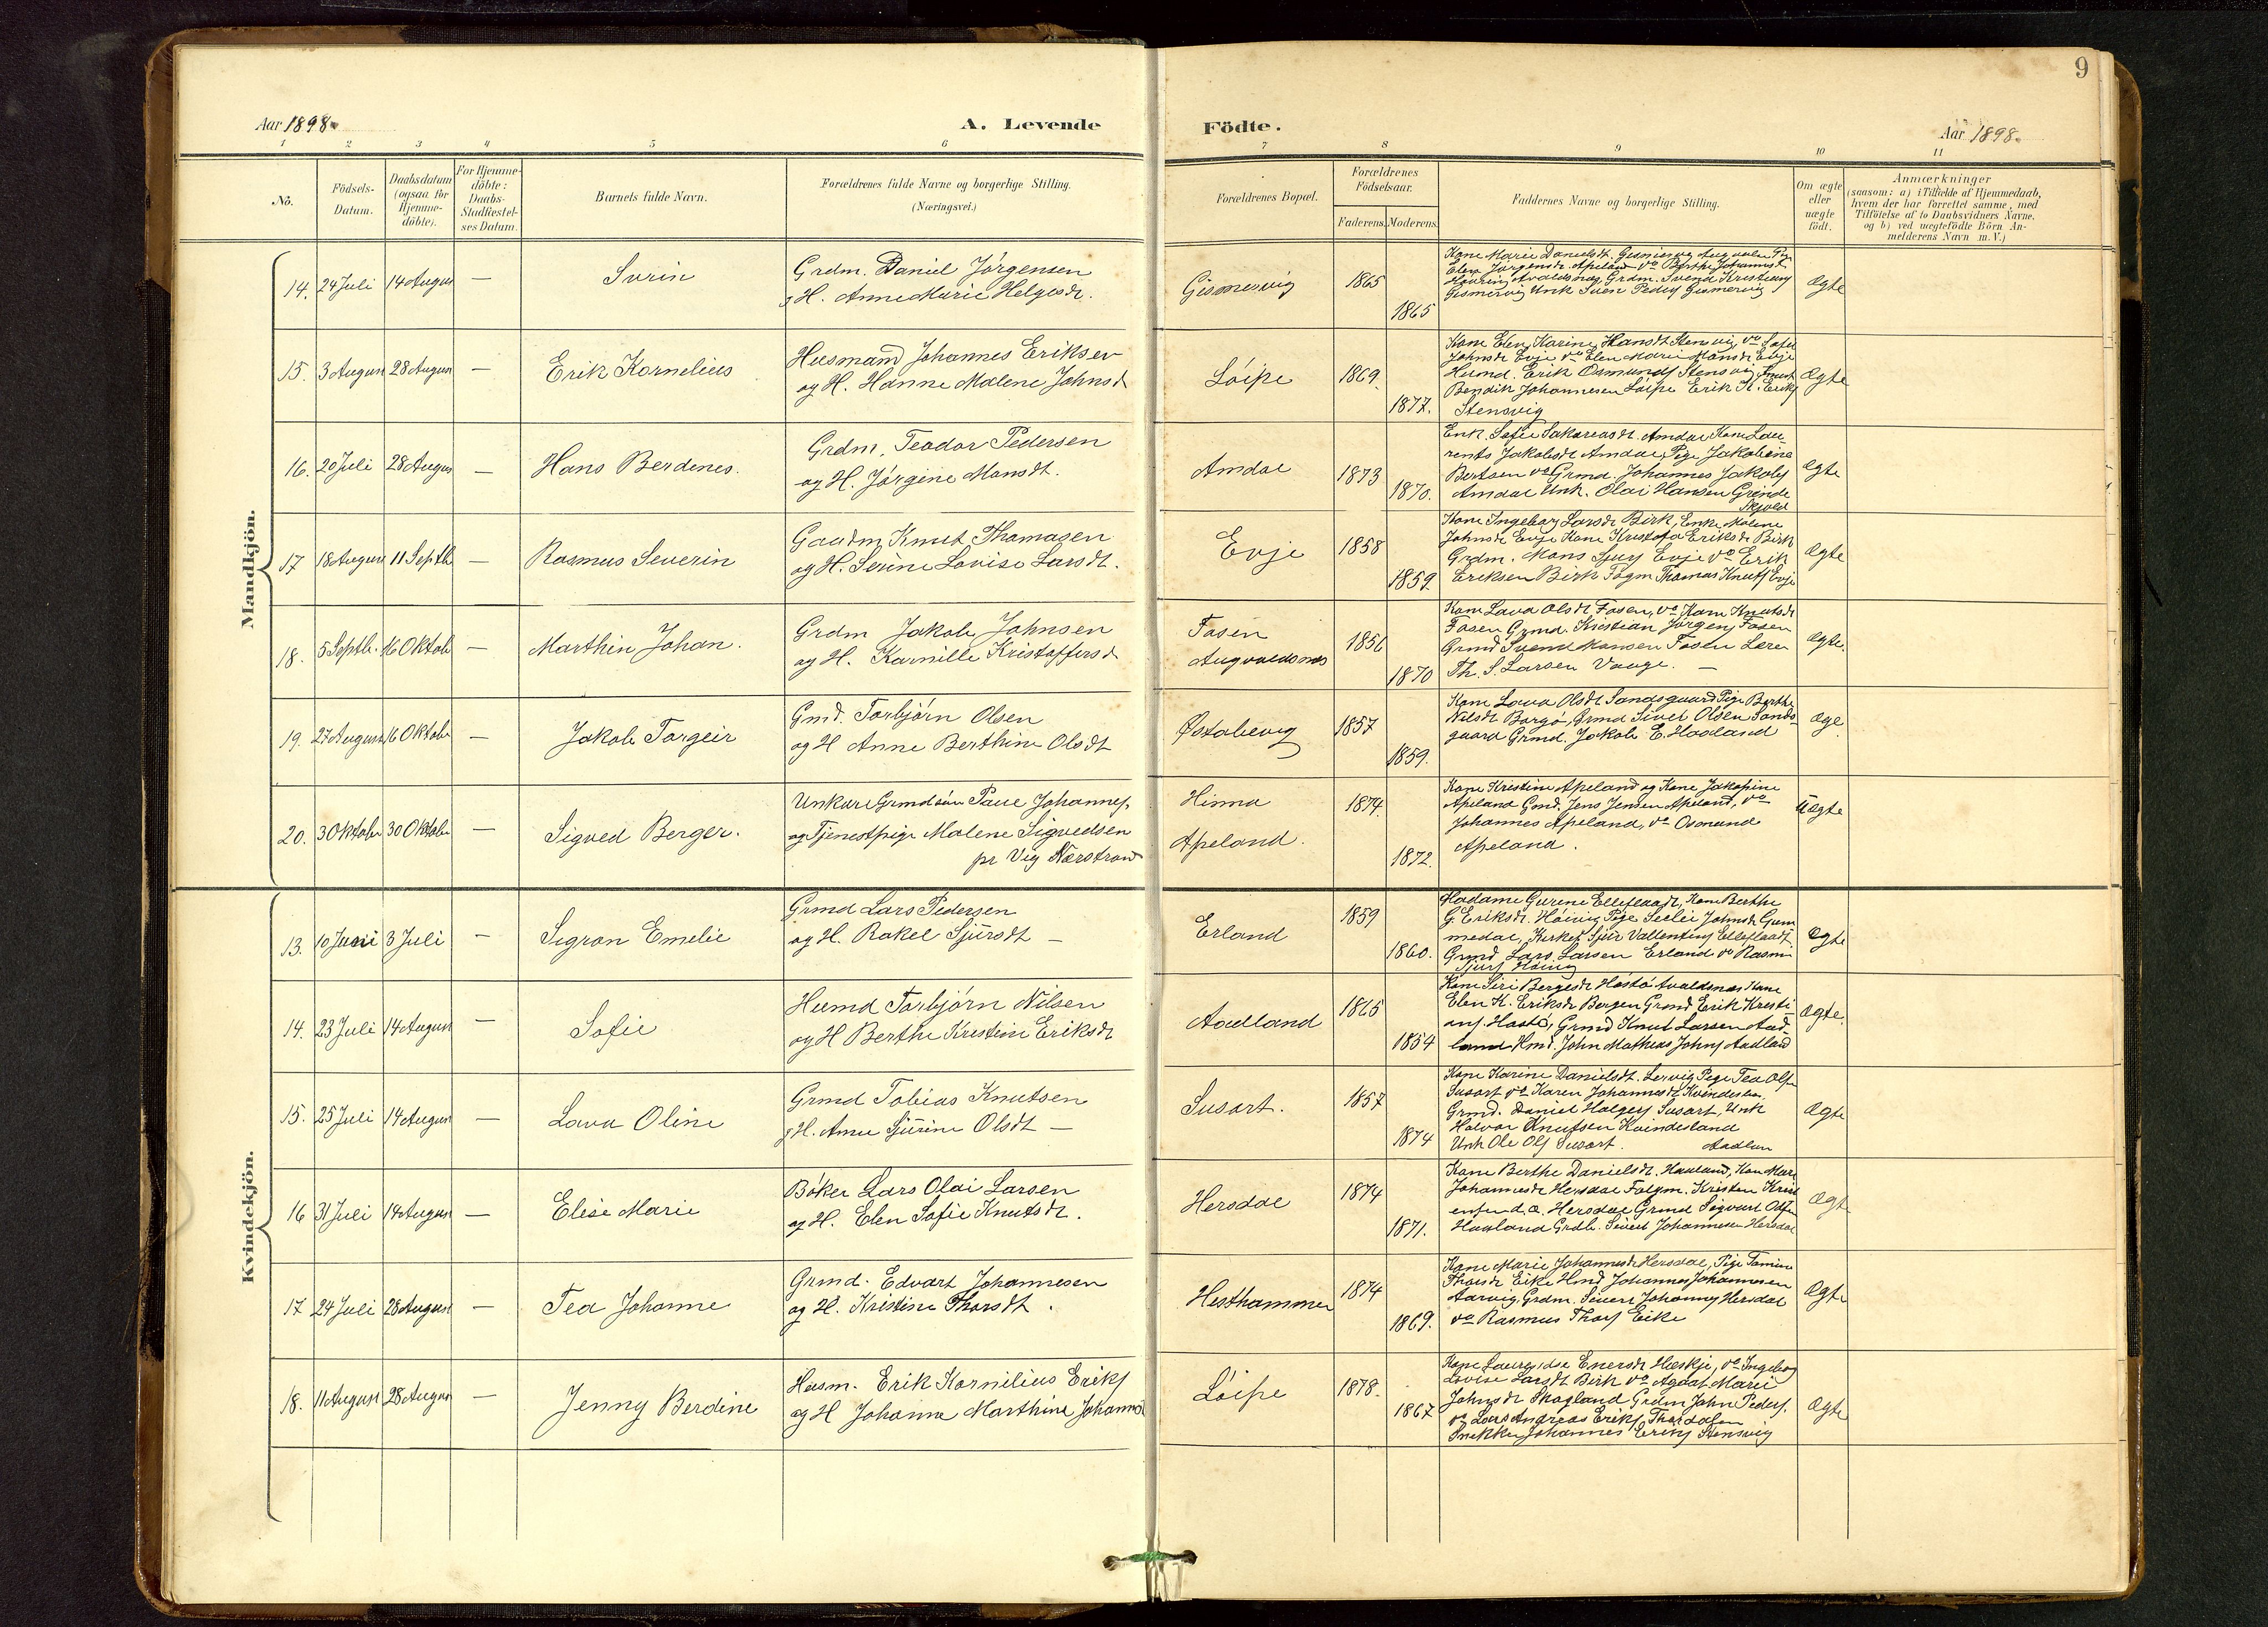 9
Aar 1898.
A. Levende Födte.
Aar 1898.
1 2 3 4 5 6 7 8 9 10 11
No.
Födsels-Datum.
Daabsdatum (ogsaa for Hjemme-döbte).
For Hjemme-döbte: Daabs-Stadfæstel-ses Datum.
Barnets fulde Navn.
Forældrenes fulde Navne og borgerlige Stilling.
(Næringsvei.)
Forældrenes Bopæl.
Forældrenes Födselsaar.
Faderens. Moderens.
Faddernes Navne og borgerlige Stilling.
Om ægte eller uægte födt.
Anmærkninger
(saasom: a) i Tilfælde af Hjemmedaab,
hvem der har forrettet samme, med
Tilföielse af to Daabsvidners Navne,
og b) ved uægtefödte Börn An-
melderens Navn m. V.)
Mandkjön.
14. 24 Juli 14 Augus — Svrin
Grdm. Daniel Jörgensen
g H. Anne Marie Helgesdr.
Gismervig 1865 1865
Kone Marie Danielsdt. Gismervig
Elen Jörgensdr. Apeland Berthe Johannesdt
Avaldsnæs Grdm. Svend Kristians
Gismervig Unk Sven Peders Gismervig
Ægte
15. 3 August 28 Augus — Erik Kornelius
Husmand Johannes Eriksen
og H. Hanne Malene Johnsd
Löipe 1869. 1877.
Kone Elen Karine Hansdt Stensvig, do Sofie
Johnsdr Evje do Elen Marie Mansdr Evje
Husmd. Erik Osmunds Stensvig Smed
Bendik Johannesen Löipe Erik K. Eriks
Stensvig
Ægte
16. 20 Juli 28 Augus — Hans Berdenes.
Grdm. Teodor Pedersen
og H. Jörgine Mansdt.
Amdal 1873 1870.
Enk. Sofie Sakariasdr. Amdal Kone Lau
rents Jakobsdt Amdal, Pige Jakobine
Bertsen do Grmd. Johannes Jakobs
Amdal Unk. Olai Hansen Grinde
Skjold
Ægte
17 18 August 11 Septb — Rasmus Severin
Gaardm Knut Thomasen
og H. Serine Lovise Larsdt.
Evje 1858 1859
Kone Ingeborg Larsdr Birk, Enke Malene
Johnsdr Evje Kone Kristofa Eriksdr Birk
Grdm. Mons Sjurs Evje do Erik
Eriksen Birk Thomas Knuts Evje
Ægte
18. 5 Septb. 16 Oktob — Marthin Johan.
Grdm Jakob Johnsen
og H. Karnille Kristoffersd
Fosen
Augvaldsnæs
1856 1870
Kone Lava Olsdt Fosen, do Kone Knutsdr
Fosen Grmd. Kristian Jörgens Fosen
Grmd Svend Monsen Fosen Lærer
Th. S. Larsen Vaage. —
Ægte.
19. 27 August 16 Oktobr — Jakob Torgeir
Gmd. Torbjörn Olsen
og H Anne Berthine Olsdt
Østabøvig 1857 1859.
Kone Lava Olsdt Sandsgaard Pige Berthe
Nilsdt Borgö, Grmd Sivel Olsen Sands-
gaard Grmd. Jakob E. Haaland
Æge
20. 3 Oktober 30 Oktob — Sigved Berger.
Unkare Grmdsön Paul Johannes.
og Tjenestpige Malene Sigvedsen
pr Vig Nærstrand
Hinna
Apeland.
1874. 1872.
Kone Kristine Apeland og Kone Jakobine
Apeland Gmd. Jens Jensen Apeland, do
Johannes Apeland, do Osmund
Apeland.
Uægte
Kvindekjön.
13. 10 Juni 3 Juli — Sigron Emelie
Grmd Lars Pedersen
og H. Rakel Sjursdt —
Erland 1859 1860.
Madame Gurine Elleflaadt, Kone Berthe
G. Eriksdr. Höinig Pige Seelie Johnsdr Gum
medal, Kirket Sjur Vallentins Elleflaadt
Grmd Lars Larsen Erland do Rasmus
Sjurs Höinig
Ægte
14. 23 Juli 14 August — Sofie
Husmd Torbjörn Nilsen
og H Berthe Kristine Eriksdt
Aadland 1865 1854
Kone Siri Bergesdt Hastö Avaldsnæs Kone
Elen K. Eriksdr Bergen Grmd Erik Kristi
ans. Hastö, Grmd Knut Larsen Aad-
land Hmd. John Mathias Johns Aadland
Ægte.
15. 25 Juli 14 August — Lava Oline
Grmd Tobias Knutsen
g H. Anne Sjurine Olsdt —
Susort. 1857 1874
Kone Karine Danielsdt. Lervig Pige Tea Ols
Susort do Karen Johannesdt Kvindesland
Grmd. Daniel Holgers Susort, Unk
Halvor Knutsen Kvindesland
Unk Ole Ols Susort. Aadlan
Ægte
16 31 Juli 14 August — Elise Marie
Böker Lars Olai Larsen
og H. Elen Sofie Knutsdt.
Hersdal 1874 1871.
Kone Berthe Danielsdt. Haaland, Kone Mari
Johannesdr Hersdal Folgm. Kristen Krist
ensen d.æ. Hersdal Grmd Sigvart Ols
Haaland Grdb. Sivert Johannesen Hersdal
Ægt
17 24 Juli 28 August — Tea Johanne
Grmd. Edvart Johannesen
og H. Kristine Thorsdt.
Hesthammer 1874 1869.
Kone Marie Johannesdr Hersdal, Pige Tomine
Thorsdr Eike Hmd Johannes Johannesen
Aarvig, Grdm. Sivert Johannes Hersdal
do Rasmus Thors Eike
Ægte
18. 11 August 28 August — Jenny Berdine
Husm. Erik Kornilius Eriks
og H Johanne Marthine Johannsd
Löipe 1878. 1867
Kone Laurendse Enersdr Heskje, do Ingeborg
Lovise Larsdt Birk do Agaat Marie
Johnsdr Skogland Grdm John Peders.
do Lars Andreas Eriks Thordalen
Snekker Johannes Eriks Stensvig
Ægte